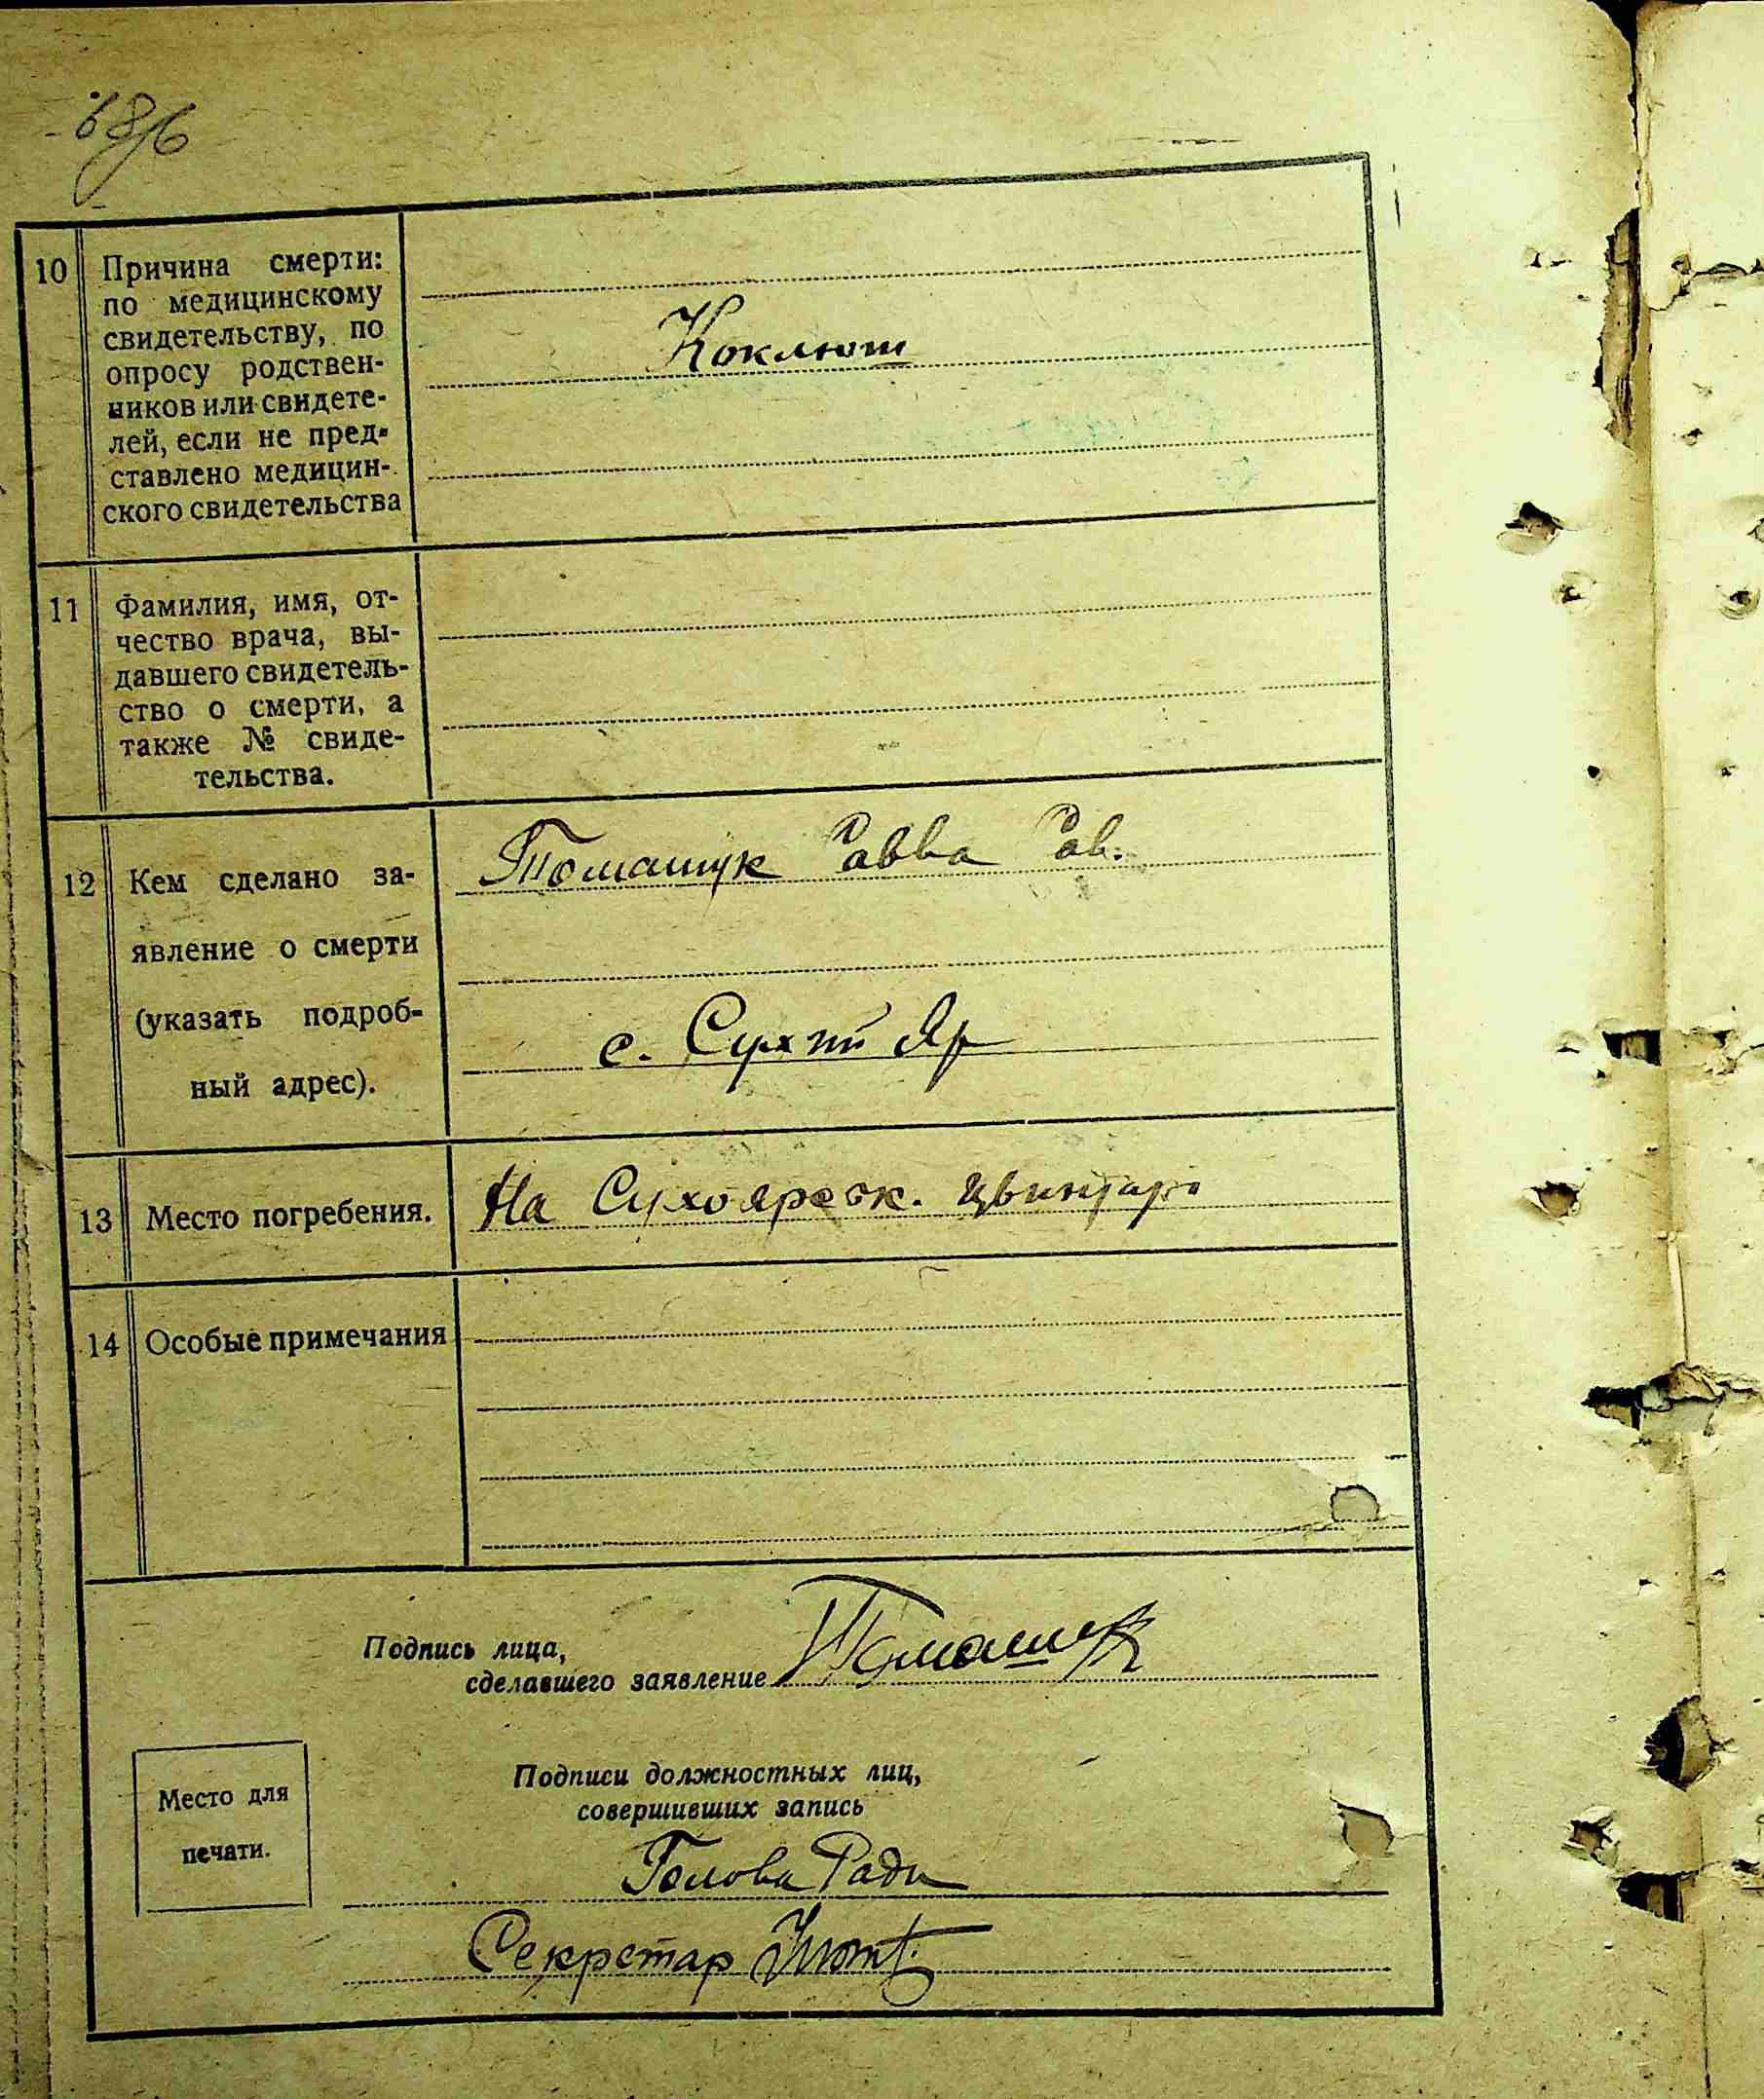 10 Причина смерти:
по медицинскому
свидетельству, по
опросу родствен-
ников или свидете-
лей, если не пред-
ставлено медицин-
ского свидетельства
Коклюш
11 Фамилия, имя, от-
чество врача, вы-
давшего свидетель-
ство о смерти, а
также № свиде-
тельства.
12 Кем сделано за-
явление о смерти
(указать подроб-
ный адрес).
Томашук Савва Сав.
с. Сухий Яр
13 Место погребения.
На Сухоярськ. цвинтарі
14 Особые примечания
Подпись лица,
сделавшего заявление Томашук
Место для
печати.
Подписи должностных лиц,
совершивших запись
Голова Ради
Секретар